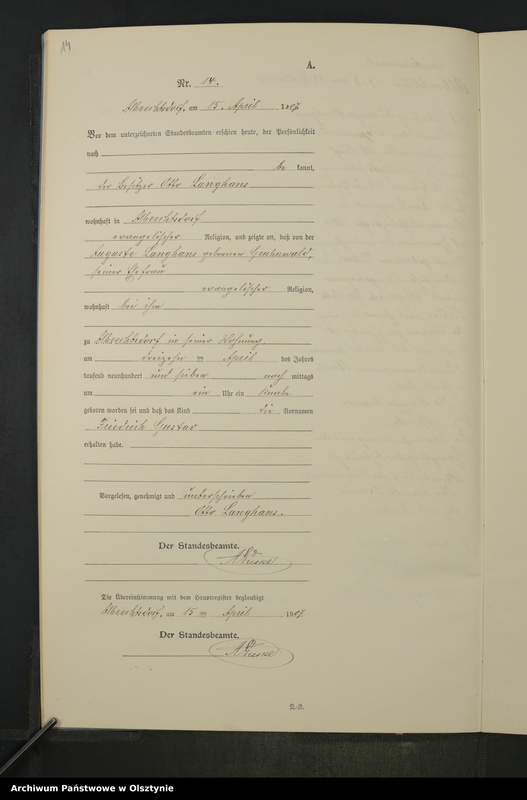 14
A.
Nr. 14.
Albrechtsdorf, am 15. April 1907
Vor dem unterzeichneten Standesbeamten erschien heute, der Persönlichkeit
nach
be kannt,
der Besitzer Otto Langhans
wohnhaft in Albrechtsdorf
evangelischer Religion, und zeigte an, daß von der
Auguste Langhans geborenen
seiner Ehefrau
evangelischer Religion,
wohnhaft bei ihm
zu Albrechtsdorf in seiner Wohnung
am dreizehn ten April des Jahres
tausend neunhundert und sieben nach mittags
um ein Uhr ein Knabe
geboren worden sei und daß das Kind die Vornamen
Friedrich Gustav
erhalten habe.
Vorgelesen, genehmigt und unterschrieben
Otto Langhans.
Der Standesbeamte.
Die Übereinstimmung mit dem Hauptregister beglaubigt
Albrechtsdorf, am 15 ten April 1907.
Der Standesbeamte.
Archiwum Państwowe w Olsztynie